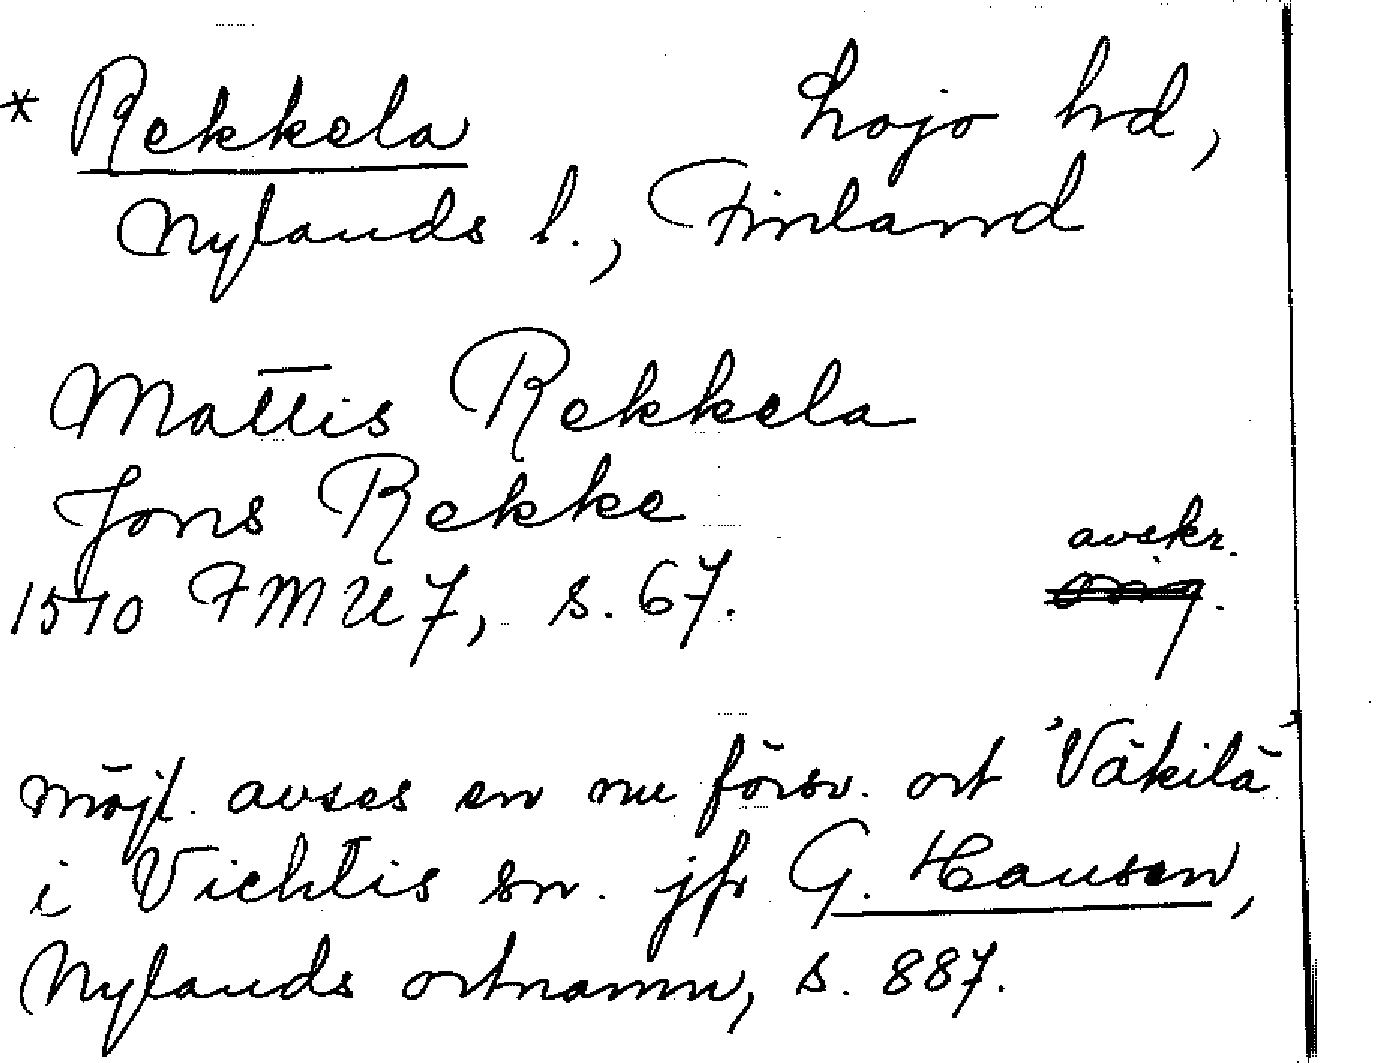 * Rekkela Lojo hd,
Nylands l., Finland
Mattis Rekkela
Jons Rekke
avskr.
1570 FMU 7, s. 67. orig.
möjl. avses en nu försv. ort 'Väkilä'
i Vichtis sn. jfr G. Hausen,
Nylands ortnamn, s. 887.